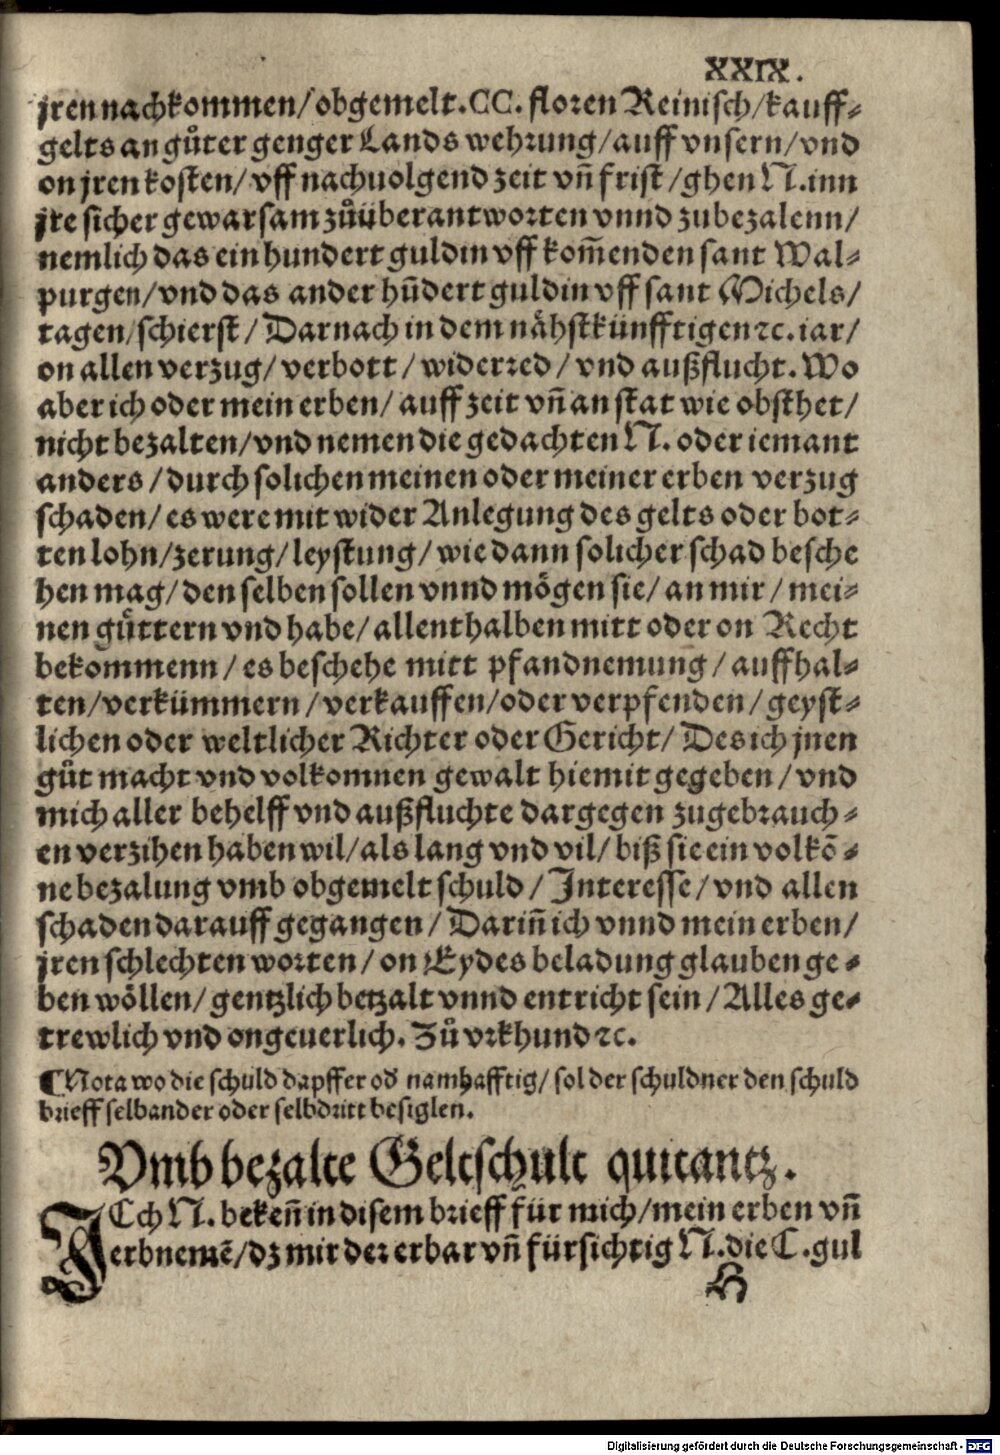 XXIX.
jren nachkommen/ obgemelt. CC. floren Reinisch/ kauff⸗
gelts an gůter genger Lands wehrung/ auff vnsern/ vnd
on jren kosten/ vff nachuolgend zeit vñ frist/ ghen N. inn
jre sicher gewarsam zůüberantworten vnnd zubezalenn/
nemlich das ein hundert guldin vff kom̃enden sant Wal⸗
purgen/ vnd das ander hũdert guldin vff sant Michels/
tagen/ schierst/ Darnach in dem nähstkünfftigen ꝛc. iar/
on allen verzug/ verbott/ widerred/ vnd außflucht. Wo
aber ich oder mein erben/ auff zeit vñ an stat wie obsthet/
nicht bezalten/ vnd nemen die gedachten N. oder iemant
anders/ durch solichen meinen oder meiner erben verzug
schaden/ es were mit wider Anlegung des gelts oder bot⸗
ten lohn/ zerung/ leystung/ wie dann solicher schad besche
hen mag/ den selben sollen vnnd mögen sie/ an mir/ mei⸗
nen gůttern vnd habe/ allenthalben mitt oder on Recht
bekommenn/ es beschehe mitt pfandnemung/ auffhal⸗
ten/ verkümmern/ verkauffen/ oder verpfenden/ geyst⸗
lichen oder weltlicher Richter oder Gericht/ Des ich jnen
gůt macht vnd volkomnen gewalt hiemit gegeben/ vnd
mich aller behelff vnd außfluchte dargegen zugebrauch⸗
en verzihen haben wil/ als lang vnd vil/ biß sie ein volkō⸗
ne bezalung vmb obgemelt schuld/ Interesse/ vnd allen
schaden darauff gegangen/ Dariñ ich vnnd mein erben/
jren schlechten worten/ on Eydes beladung glauben ge⸗
ben wöllen/ gentzlich betzalt vnnd entricht sein/ Alles ge⸗
trewlich vnd ongeuerlich. Zů vrkhund ꝛc.
¶ Nota wo die schuld dapffer od̕ namhafftig/ sol der schuldner den schuld
brieff selbander oder selbdritt besiglen.
Vmb bezalte Geltschult quitantz.
ICch N. bekeñ in disem brieff für mich/ mein erben vñ
erbnemẽ/ dz mir der erbar vñ fürsichtig N. die C. gul
H
Digitalisierung gefördert durch die Deutsche Forschungsgemeinschaft - DFG